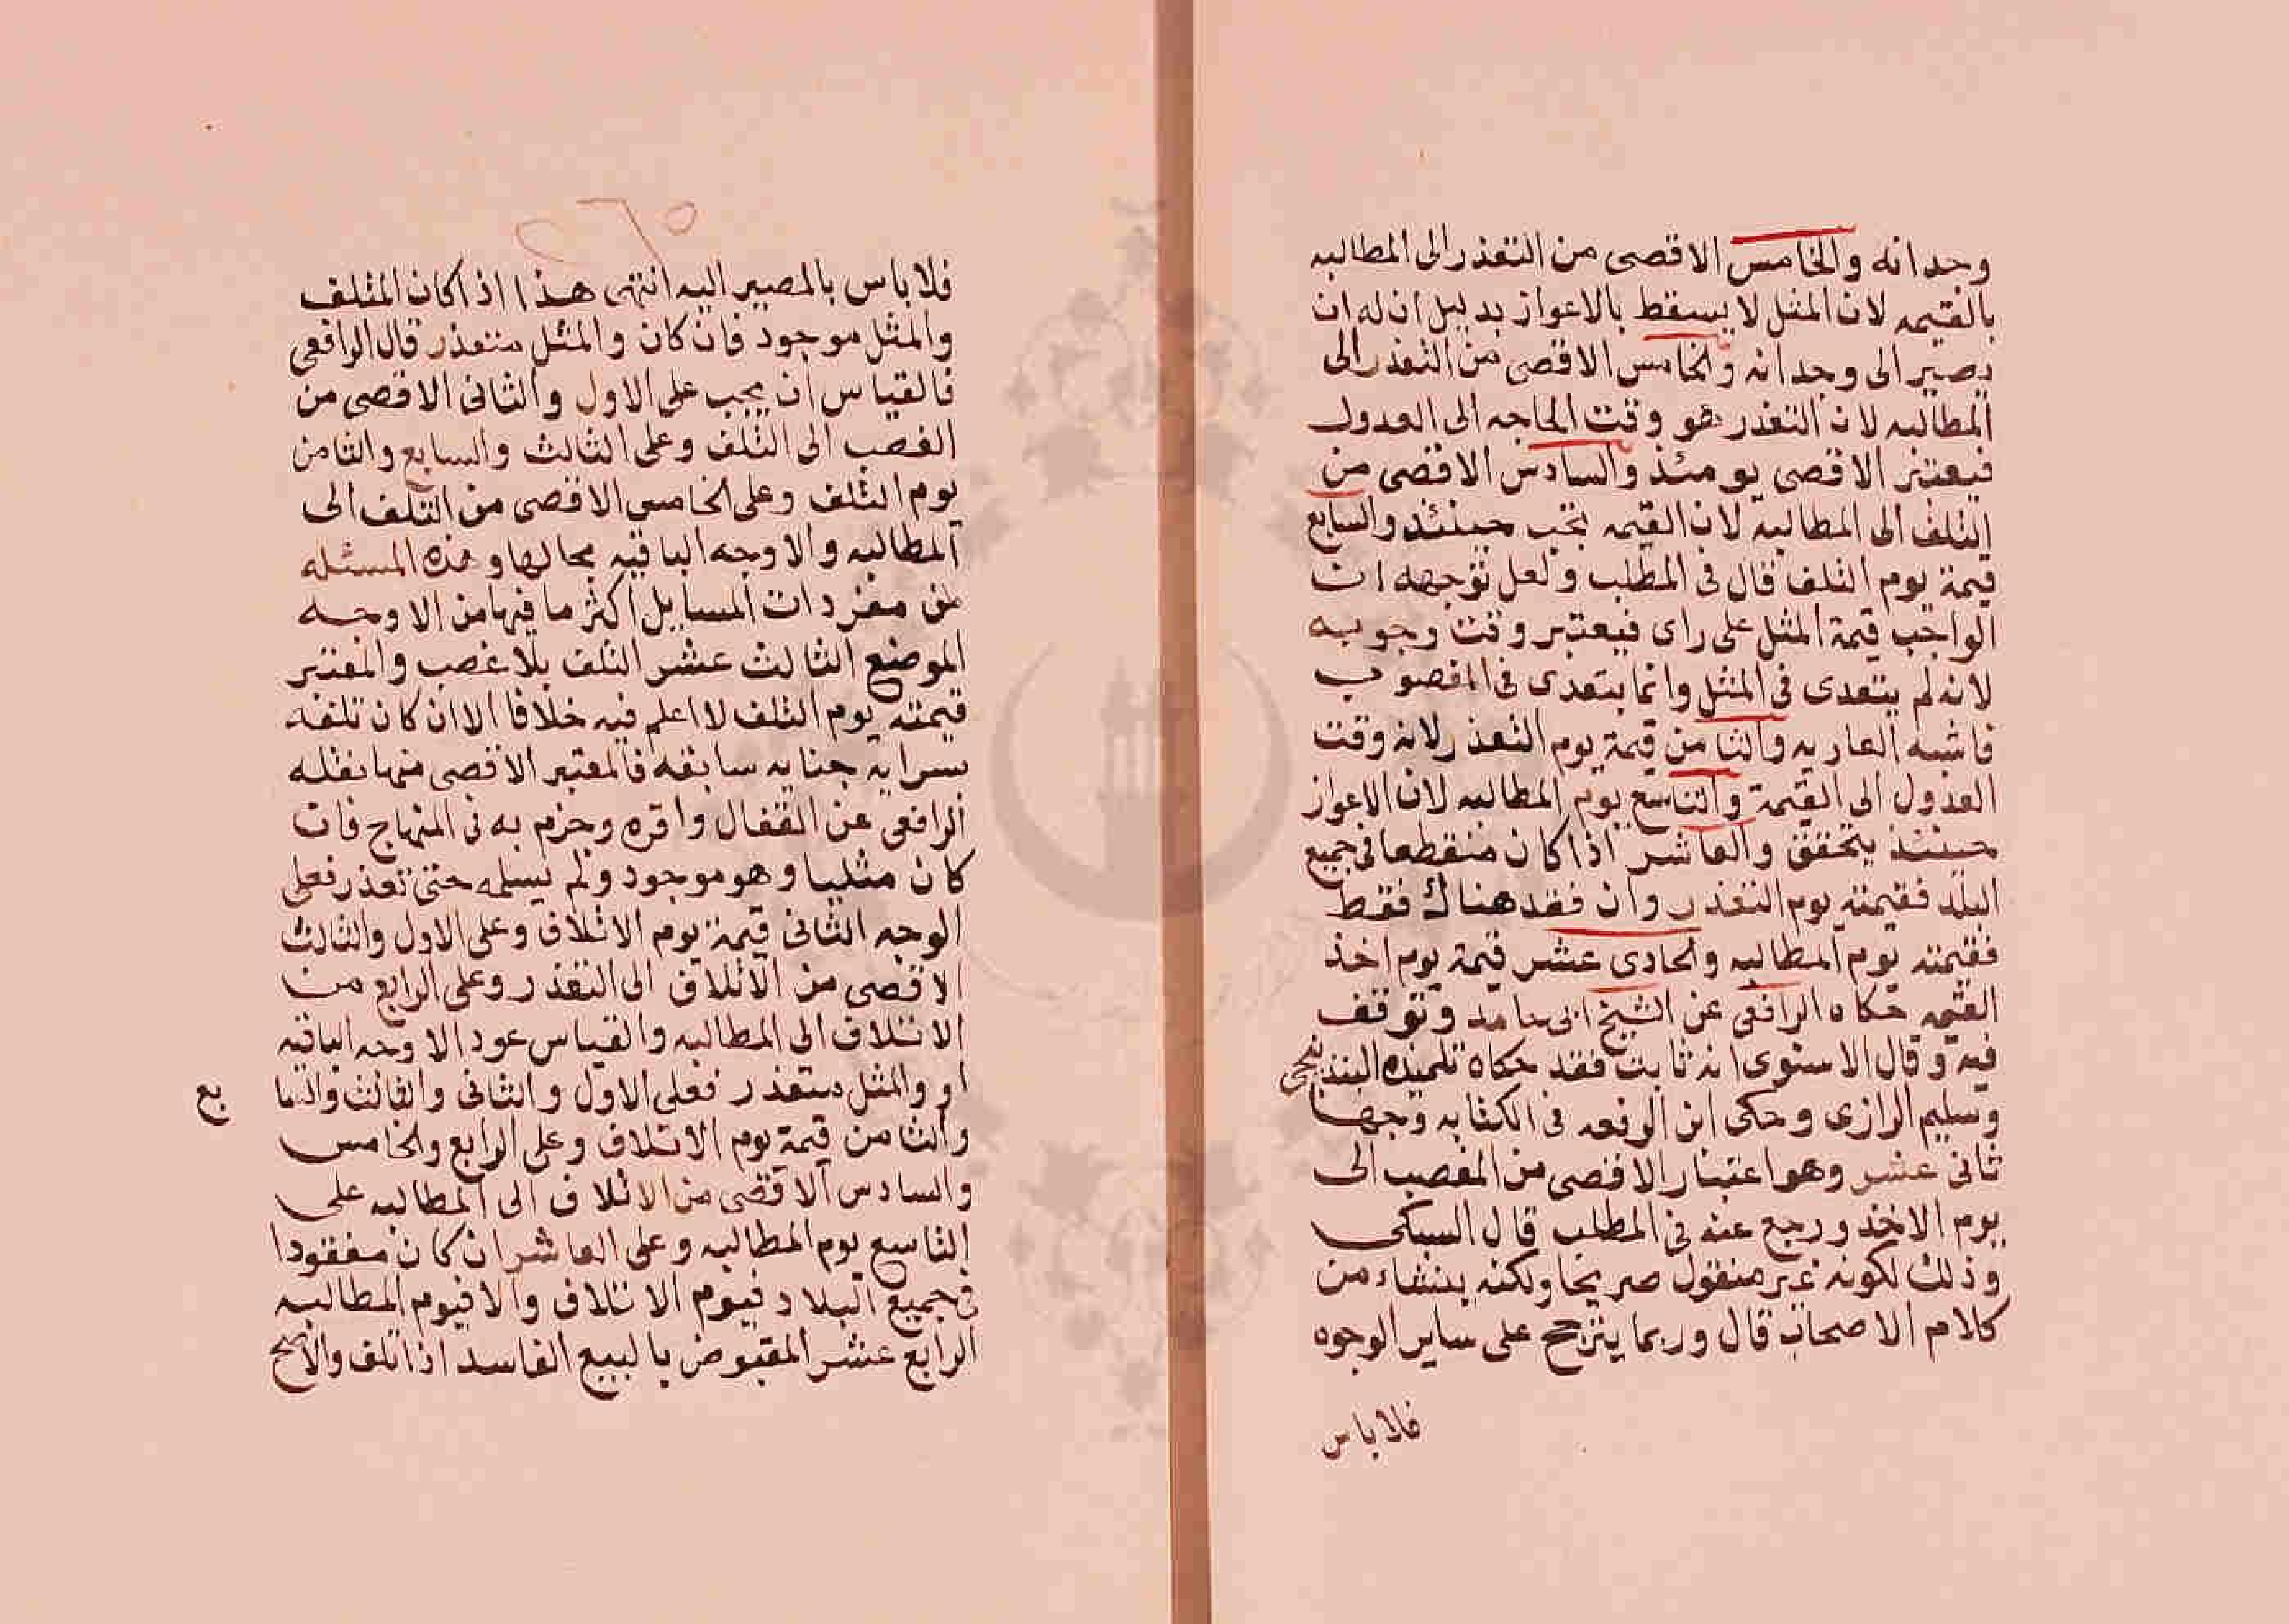 وجدانه والخامس الاقصى من التعذر الى المطالبه
بالقيمه لان المثل لا يسقط بالاعواز بدليل ان له ان
يصير الى وجدانه والخامس الاقصى من التعذر الى
المطالبه لان التعذر هو وقت الحاجه الى العدول
فيعتبر الاقصى يومئذ والسادس الاقصى من
التلف الى المطالبة لان القيمه تجب حينئذ والسابع
قيمة يوم التلف قال في المطلب ولعل توجهه ان
الواجب قيمة المثل على راى فيعتبر وقت وجوبه
لانه لم يتعدى في المثل وانما يتعدى في المغصوب
فاشبه العاريه والثامن قيمة يوم التعذر لانه وقت
العدول الى القيمة والتاسع يوم المطالبه لان الاعواز
حينئذ يتحقق والعاشر اذا كان منقطعا في جميع
البلد فقيمته يوم التعذر وان فقد هناك فقط
فقيمته يوم المطالبه والحادى عشر قيمة يوم اخذ
القيمه حكاه الرافعى عن الشيخ ابى حامد وتوقف
فيه وقال الاسنوى انه ثابت فقد حكاه تلميذه البندنيجى
وسليم الرازى وحكى ابن الرفعه في الكفايه وجها
ثانى عشر وهو اعتبار الاقصى من الغصب الى
يوم الاخذ ورجع عنه في المطلب قال السبكى
وذلك لكونه غير منقول صريحا ولكنه ينشاء من
كلام الاصحاب قال وربما يترجح على ساير الوجوه
فلا باس
فلا باس بالمصير اليه انتهى هذا اذا كان المتلف
والمثل موجود فان كان والمثل متعذر قال الرافعى
فالقياس ان يجب على الاول والثانى الاقصى من
الغصب الى التلف وعلى الثالث والسابع والثامن
يوم التلف وعلى الخامس الاقصى من التلف الى
المطالبه والاوجه الباقيه بحالها وهذه المسئله
من مفردات المسايل اكثر ما فيها من الاوجه
الموضع الثالث عشر التلف بلا غصب والمعتبر
قيمته يوم التلف لا اعلم فيه خلافا الا ان كان تلفه
بسراية جنايه سابقه فالمعتبر الاقصى منها نقله
الرافعى عن القفال واقره وجزم به في المنهاج فان
كان مثليا وهو موجود ولم يسلمه حتى تعذر فعلى
الوجه الثانى قيمة يوم الاتلاف وعلى الاول والثالث
الاقصى من الاتلاف الى التعذر وعلى الرابع من
الاتلاف الى المطالبه والقياس عود الاوجه الباقيه
او والمثل متعذر فعلى الاول والثانى والثالث والسابع
والثامن قيمة يوم الاتلاف وعلى الرابع والخامس
والسادس الاقصى من الاتلاف الى المطالبه على
التاسع يوم المطالبه وعلى العاشر ان كان مفقودا
في جميع البلاد فيوم الاتلاف والا فيوم المطالبه
الرابع عشر المقبوض بالبيع الفاسد اذا تلف والاصح